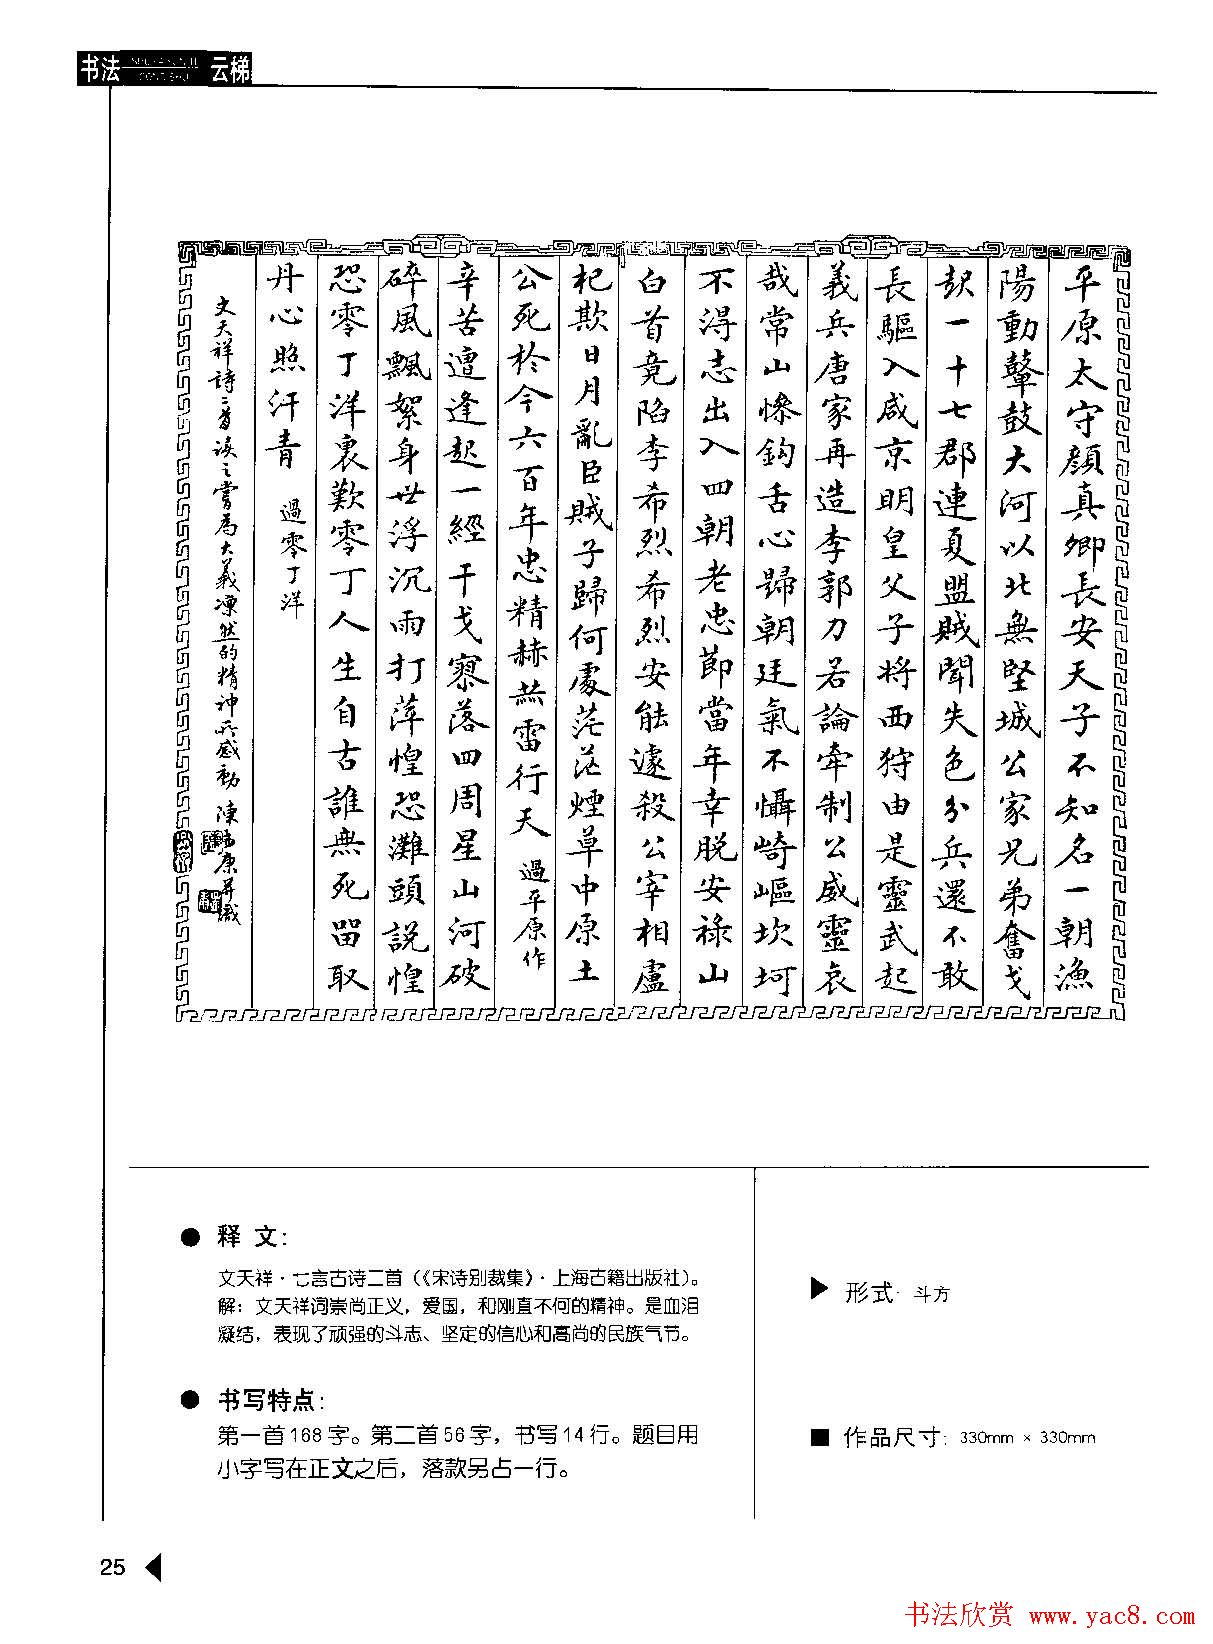 书法 云梯
平原太守顔真卿長安天子不知名一朝漁
陽動鼙鼓大河以北無堅城公家兄弟奮戈
起一十七郡連夏盟賊聞失色分兵還不敢
長驅入咸京明皇父子將西狩由是靈武起
義兵唐家再造李郭力若論牽制公威靈哀
哉常山慘鈎舌心歸朝廷氣不懾崎嶇坎坷
不得志出入四朝老忠節當年幸脱安禄山
白首竟陷李希烈希烈安能遽殺公宰相盧
杞欺日月亂臣賊子歸何處茫茫煙草中原土
公死於今六百年忠精赫赫雷行天 過平原作
辛苦遭逢起一經干戈寥落四周星山河破
碎風飄絮身世浮沉雨打萍惶恐灘頭説惶
恐零丁洋裏歎零丁人生自古誰無死留取
丹心照汗青 過零丁洋
文天祥詩二首讀之嘗爲大義凜然的精神所感動 陳 康并識
● 释 文：
文天祥·七言古诗二首（《宋诗别裁集》·上海古籍出版社）。
解：文天祥词崇尚正义，爱国，和刚直不阿的精神。是血泪
凝结，表现了顽强的斗志、坚定的信心和高尚的民族气节。
● 书写特点：
第一首168字。第二首56字，书写14行。题目用
小字写在正文之后，落款另占一行。
▶ 形式· 斗方
■ 作品尺寸：330mm × 330mm
25 ◀
书法欣赏 www.yac8.com